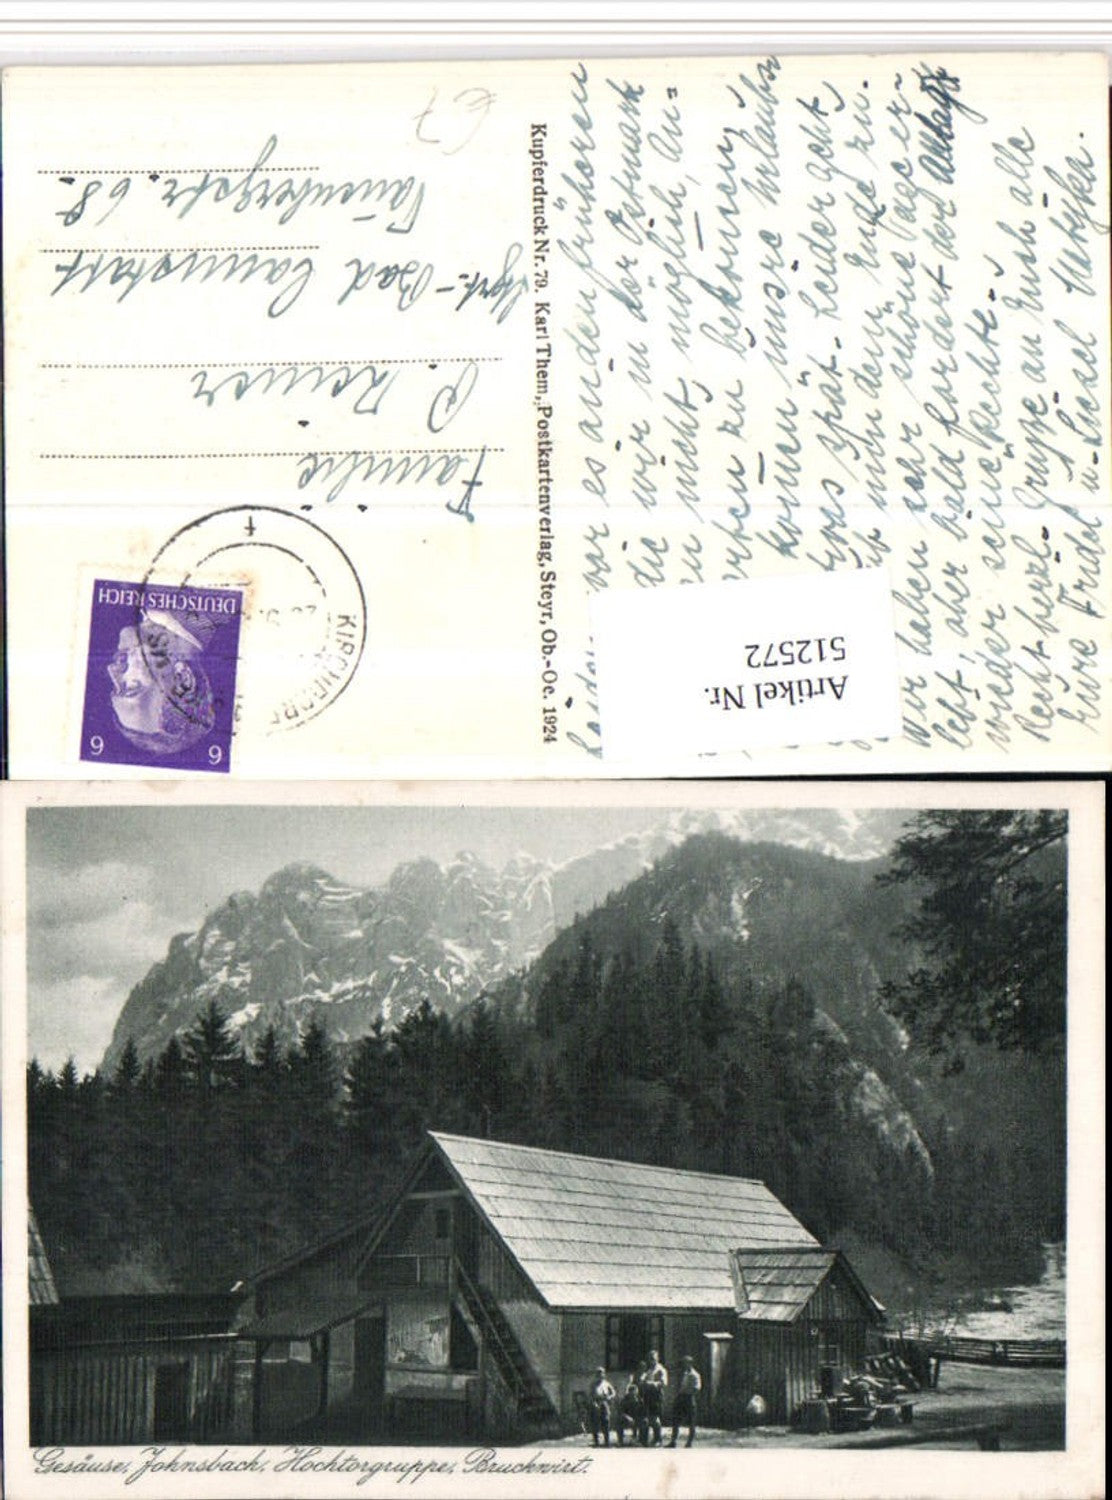 Leider war es an den früheren
die wir in der Ostmark
nicht möglich, An-
zu bekommen,
kommen unsre Urlaubs
spät. Leider geht
mit nun dem Ende zu.
Wir haben sehr schöne Tage er-
lebt, aber bald fordert der Alltag
wieder seine Rechte.
Recht herzl. Grüsse an Euch alle
Eure Fridel u. Liesel
Kupferdruck Nr. 79. Karl Them, Postkartenverlag, Steyr, Ob.-Oe. 1924
Familie
P. Reiner
Stgt.-Bad Cannstatt
str. 68.
€7
DEUTSCHES REICH
6 6
KIRCHDORF
f
Artikel Nr.
512572
Gesäuse, Johnsbach, Hochtorgruppe, Bruckwirt.